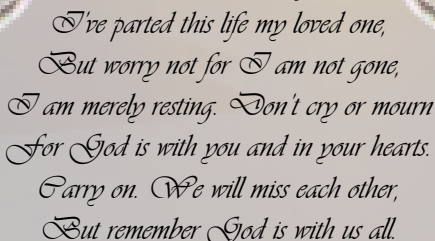 I've parted this life my loved one,
But worry not for I am not gone,
I am merely resting. Don't cry or mourn
For God is with you and in your hearts.
Carry on. We will miss each other,
But remember God is with us all.